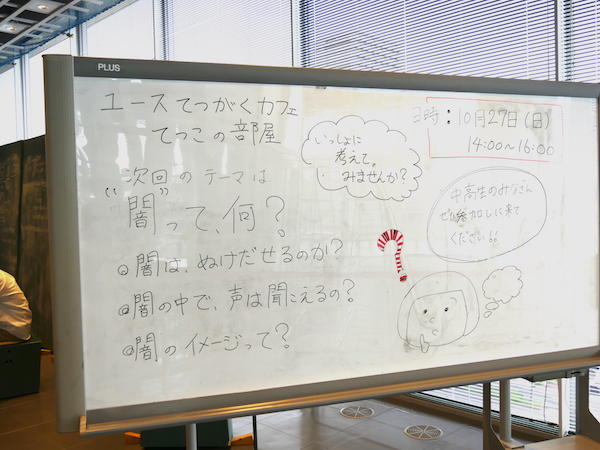 PLUS
ユースてつがくカフェ
てつこの部屋
いっしょに
考えて、
みませんか?
日時:10月27日(日)
14:00〜16:00
次回のテーマは
"闇"って、何?
中高生のみなさん
ぜひ参加しに来て
ください!!
◎闇は、ぬけだせるのか?
◎闇の中で、声は聞こえるの?
◎闇のイメージって?